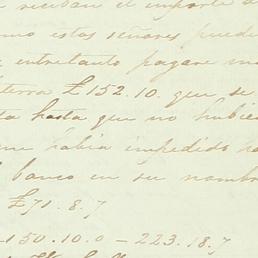 reciban el importe d
mo estos señores puede
entretanto pagare
terra £152.10. que se
ta hasta que no hubie
me habia impedido ha
banco en su nombr
£71.8.7
150.10.0 — 223.18.7